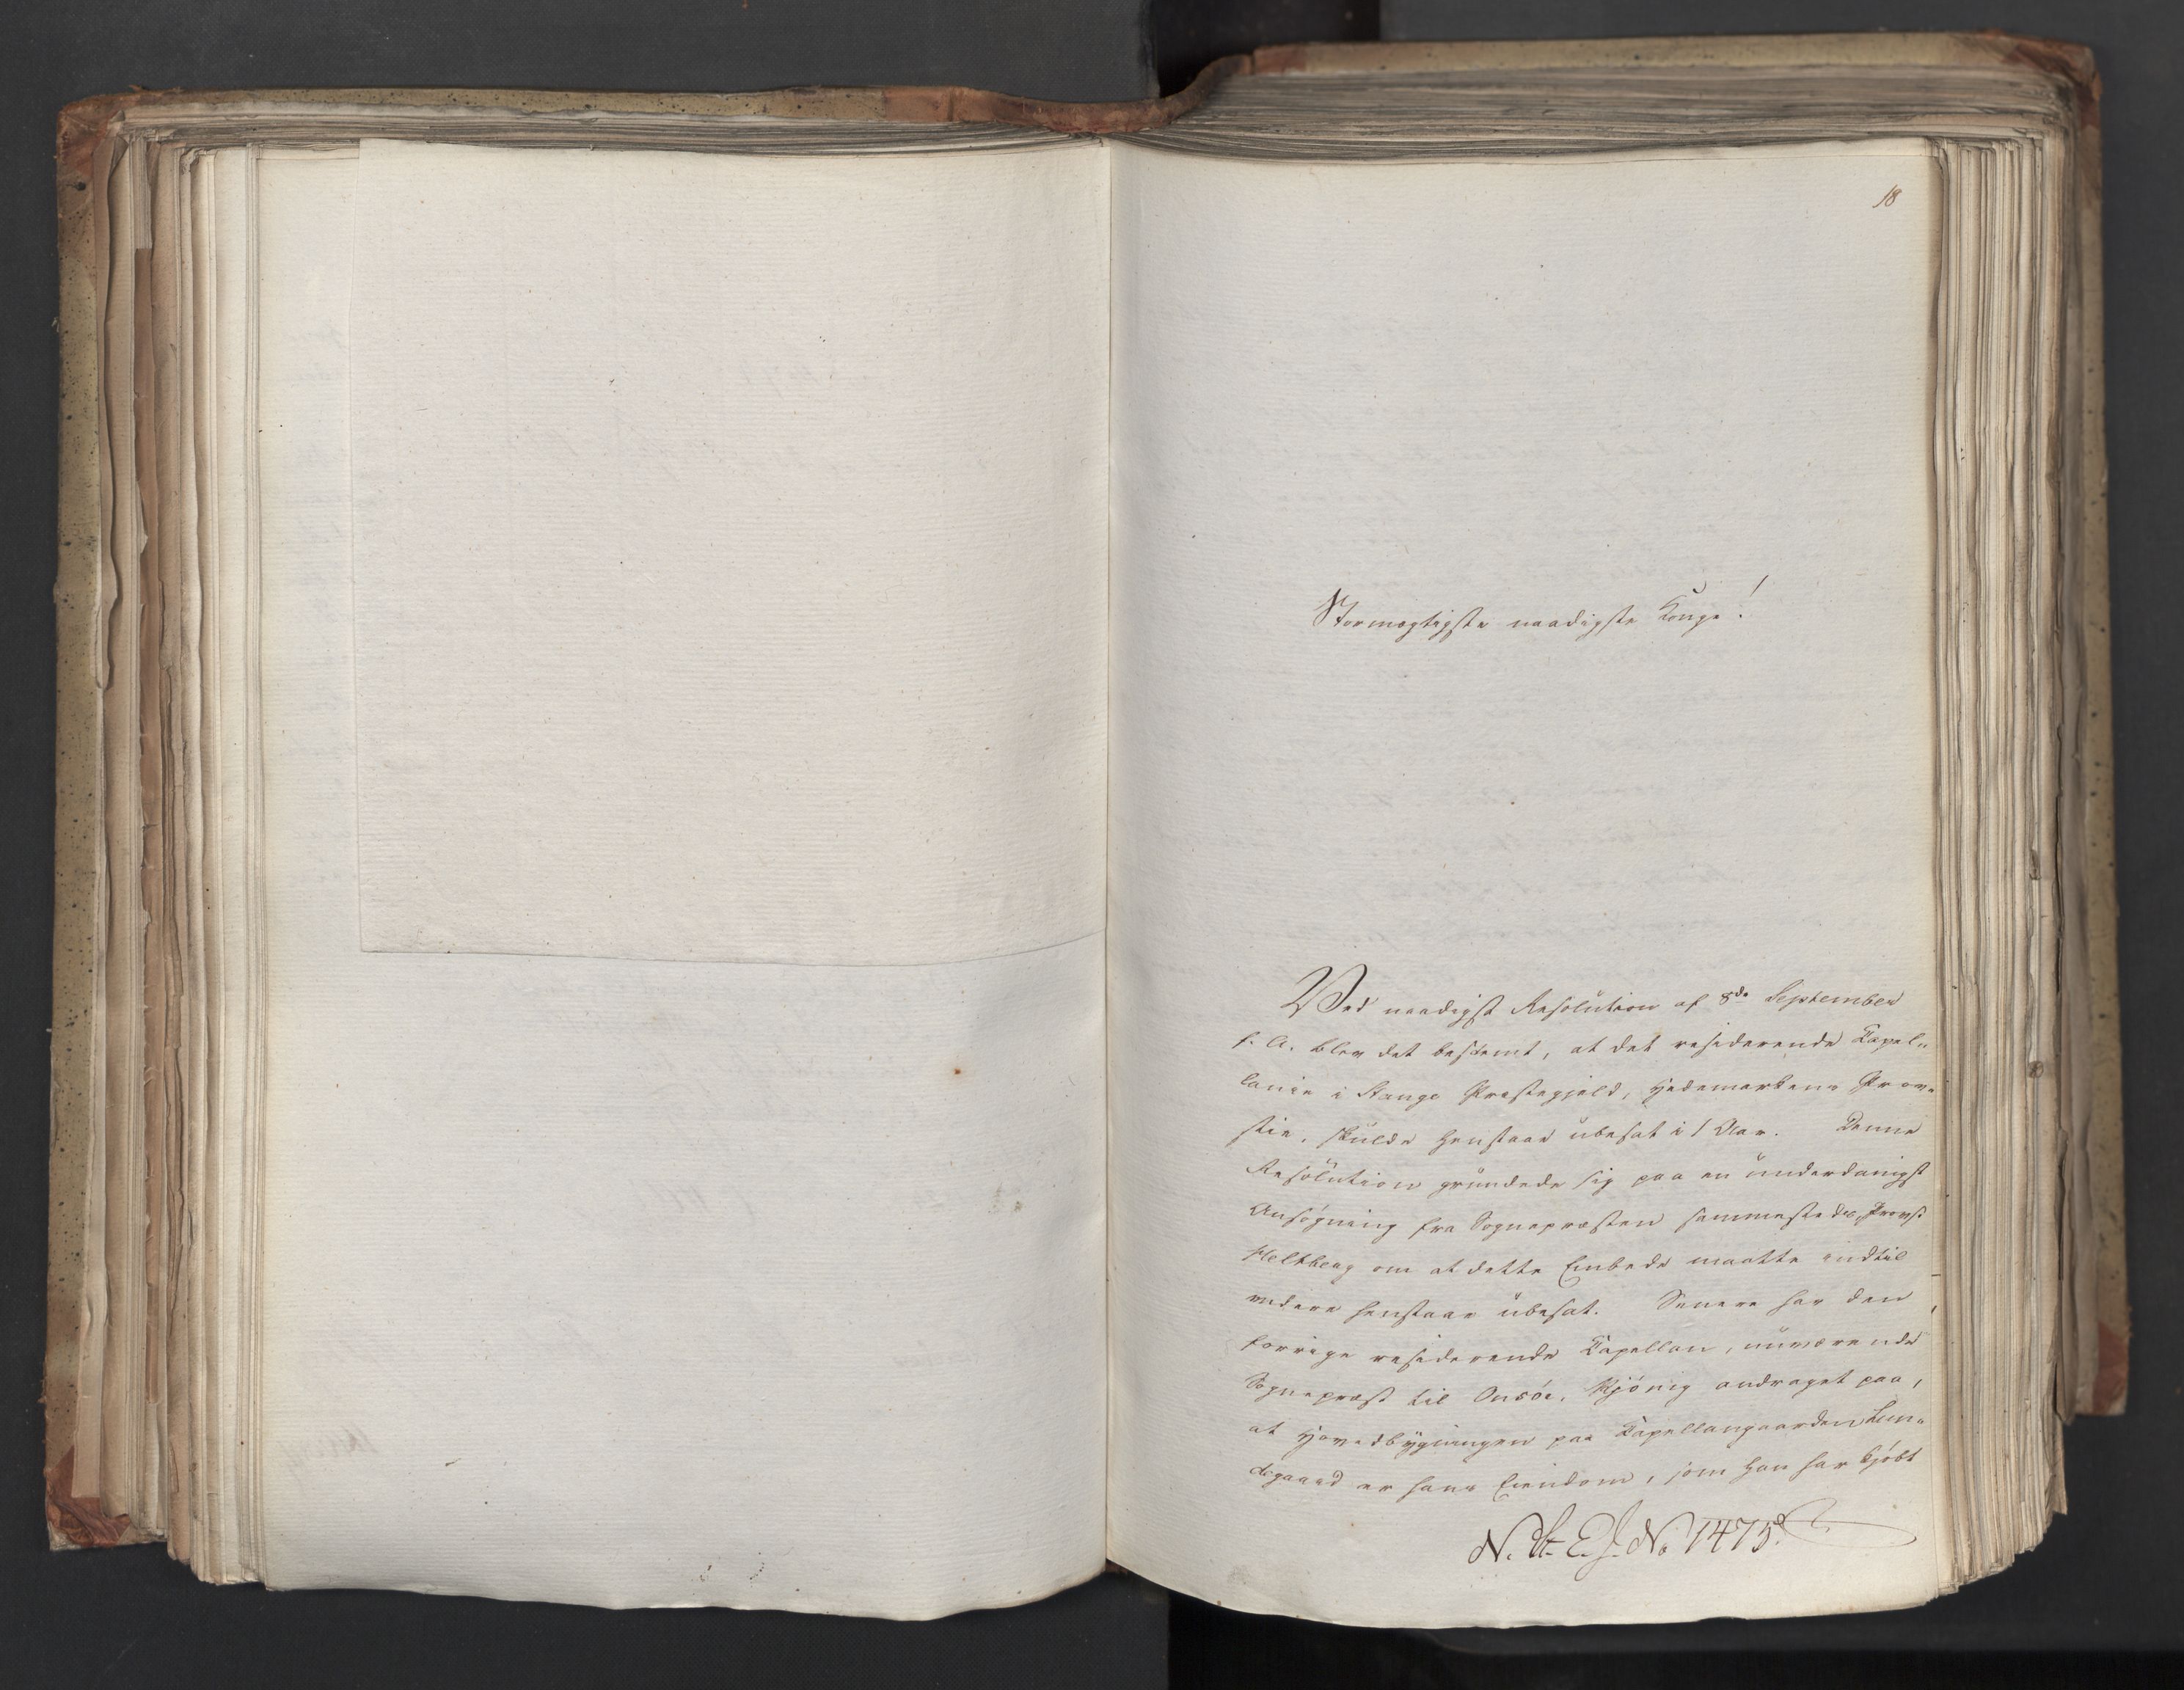 18
Stormægtigste naadigste Konge!
Ved naadigst Resolution af 8de September
f. A. blev det bestemt, at det residerende Capel-
lanie i Stange Præstegjeld, Hedemarkens Prov-
stie, skulde henstaae ubesat i 1 Aar. Denne
Resolution grundede sig paa en underdanigst
Ansøgning fra Sognepræsten sammesteds, Provst
Heltberg om at dette Embede maatte indtil
videre henstaae ubesat. Senere har den
forrige residerende Capellan, nuværende
Sognepræst til Onsøe, Kjønig andraget paa,
at Hovedbygningen paa Capellangaarden Lun-
degaard er hans Eiendom, som han har kjøbt
N. St. E. J. No 1475.